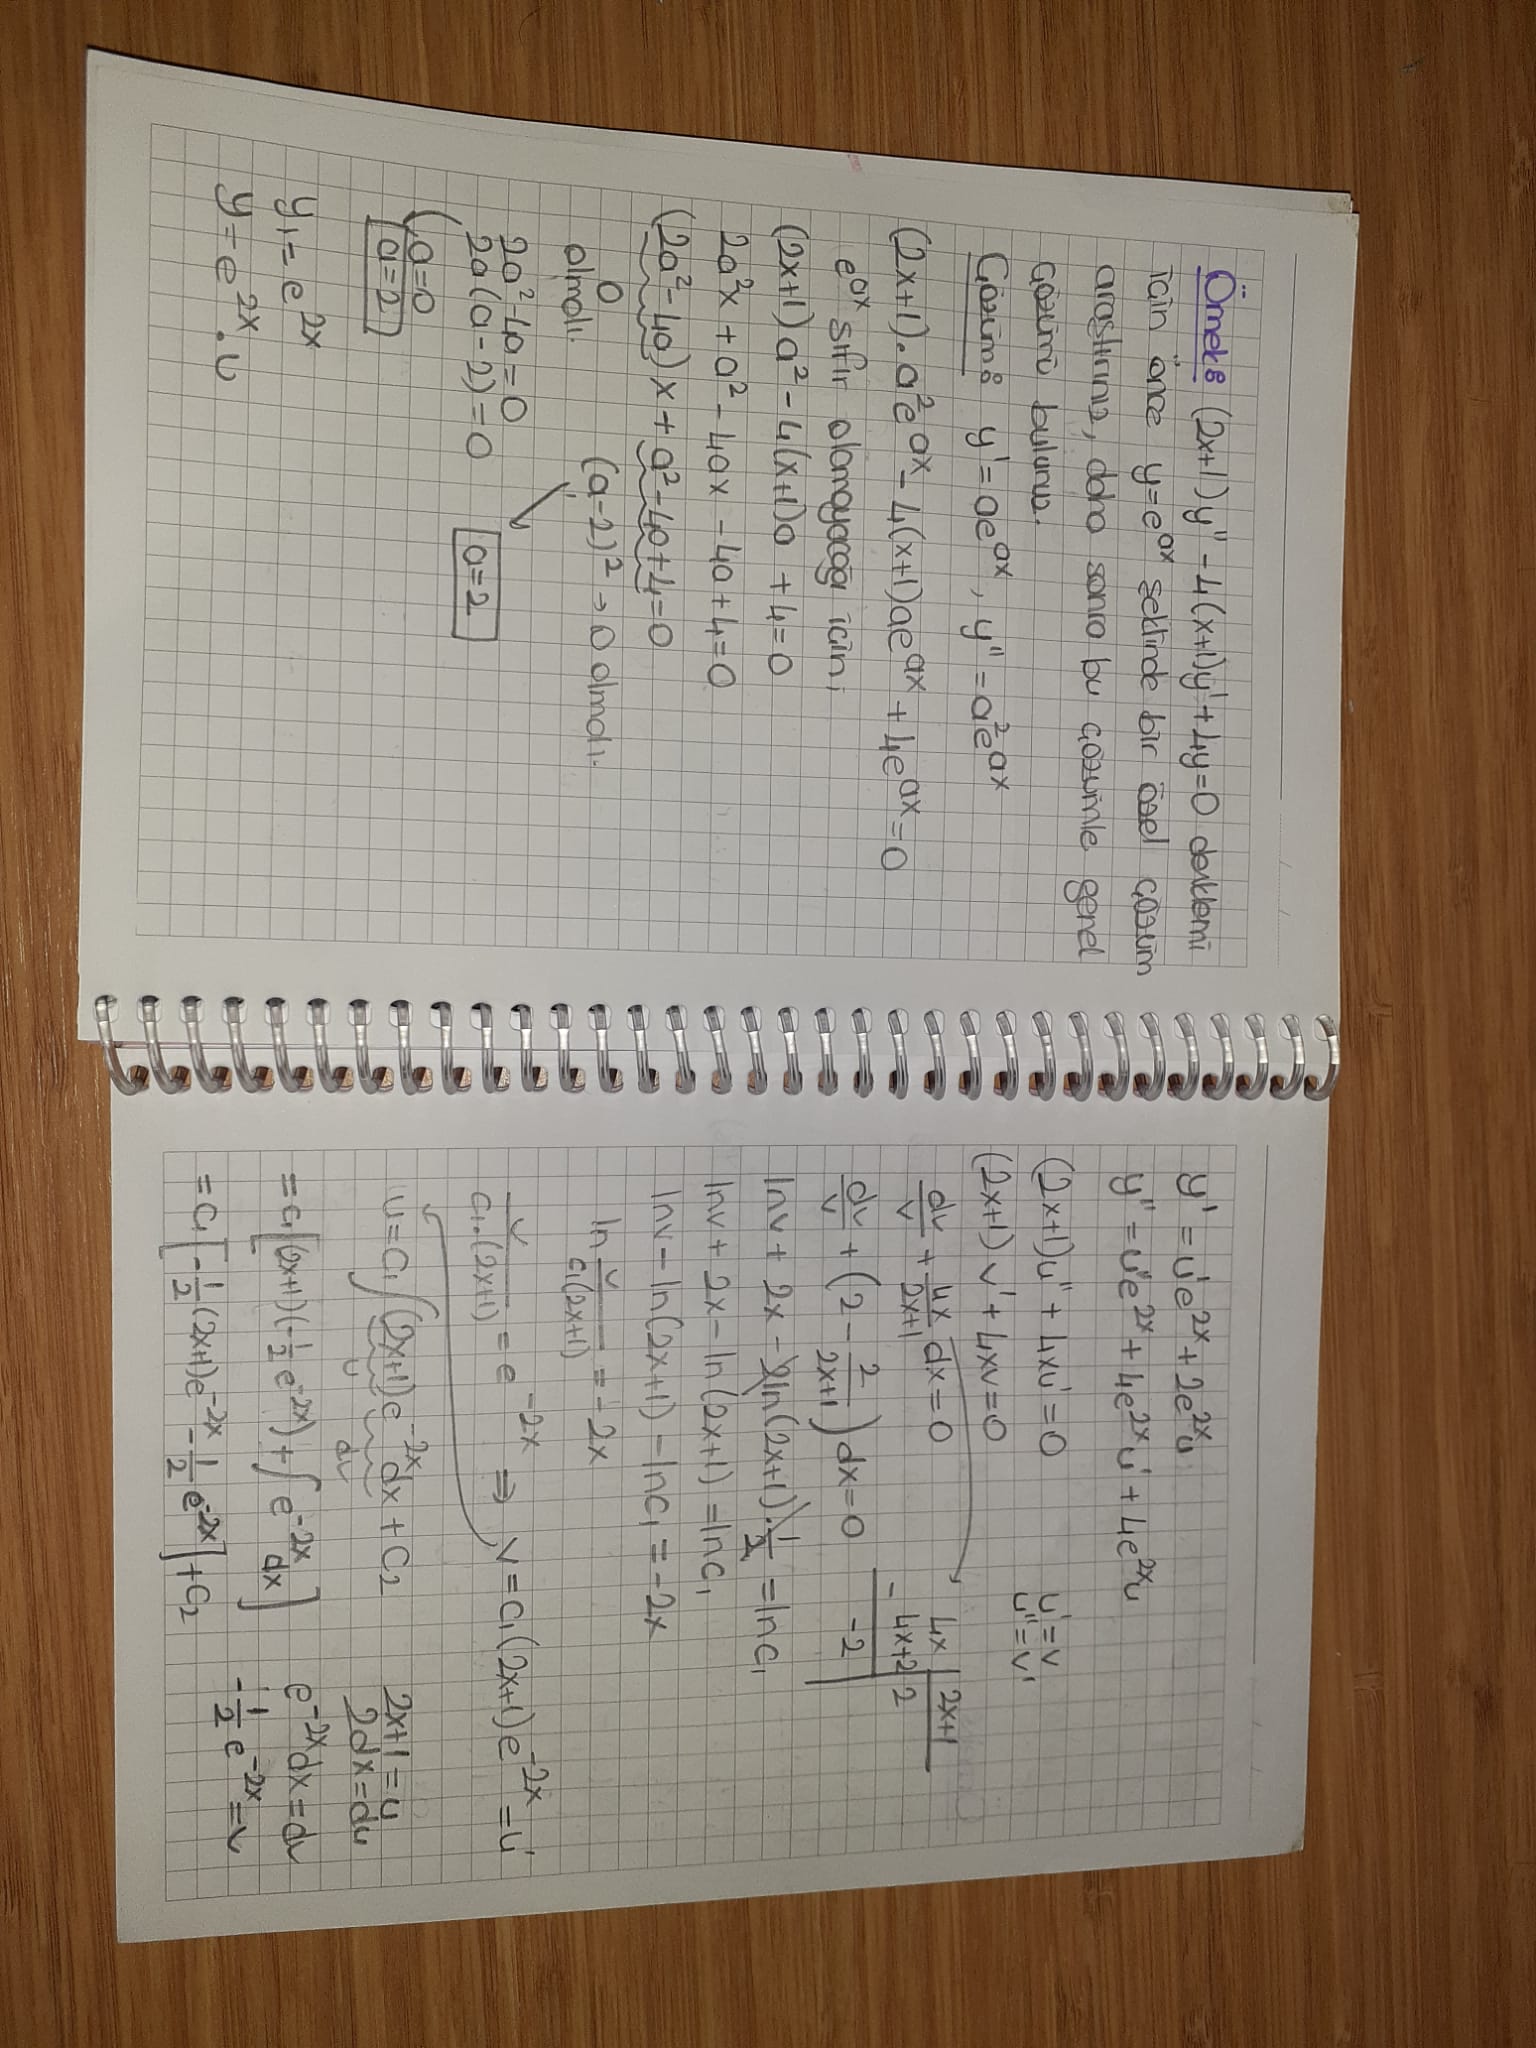 Örnek: (2x+1)y'' - 4(x+1)y' + 4y = 0 denklemi
için önce y = e^{ax} şeklinde bir özel çözüm
araştırınız, daha sonra bu çözümle genel
çözümü bulunuz.
Çözüm: y' = ae^{ax}, y'' = a²e^{ax}
(2x+1).a²e^{ax} - 4(x+1)ae^{ax} + 4e^{ax} = 0
e^{ax} sıfır olamayacağı için;
(2x+1)a² - 4(x+1)a + 4 = 0
2a²x + a² - 4ax - 4a + 4 = 0
(2a² - 4a)x + a² - 4a + 4 = 0
0 olmalı.
(a-2)² → 0 olmalı.
2a² - 4a = 0
2a(a-2) = 0
a = 2
a = 0
a = 2
y₁ = e^{2x}
y = e^{2x}.u
y' = u'e^{2x} + 2e^{2x}u
y'' = u''e^{2x} + 4e^{2x}u' + 4e^{2x}u
(2x+1)u'' + 4xu' = 0
u' = v
u'' = v'
(2x+1)v' + 4xv = 0
dv/v + 4x/(2x+1) dx = 0
4x | 2x+1
- 4x+2 | 2
-2
dv/v + (2 - 2/(2x+1))dx = 0
lnv + 2x - 2ln(2x+1).1/2 = lnc₁
lnv + 2x - ln(2x+1) = lnc₁
lnv - ln(2x+1) - lnc₁ = -2x
ln v/(c₁(2x+1)) = -2x
v/(c₁.(2x+1)) = e^{-2x} ⇒ v = c₁(2x+1)e^{-2x} = u'
u = c₁∫(2x+1)e^{-2x}dx + c₂
u dv
2x+1 = u
2dx = du
= c₁[(2x+1)(-1/2 e^{-2x}) + ∫e^{-2x}dx]
e^{-2x}dx = dv
-1/2 e^{-2x} = v
= c₁[-1/2(2x+1)e^{-2x} - 1/2 e^{-2x}] + c₂